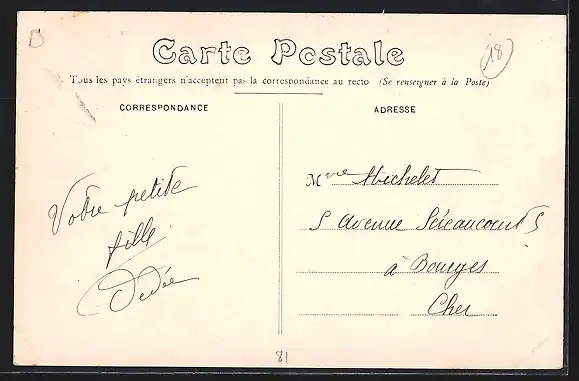 D
18
Carte Postale
Tous les pays étrangers n'acceptent pas la correspondance au recto (Se renseigner à la Poste)
CORRESPONDANCE
ADRESSE
Votre petite
fille
Dédée
Mme Michelet
5 Avenue Séraucourt 5
à Bourges
Cher
81